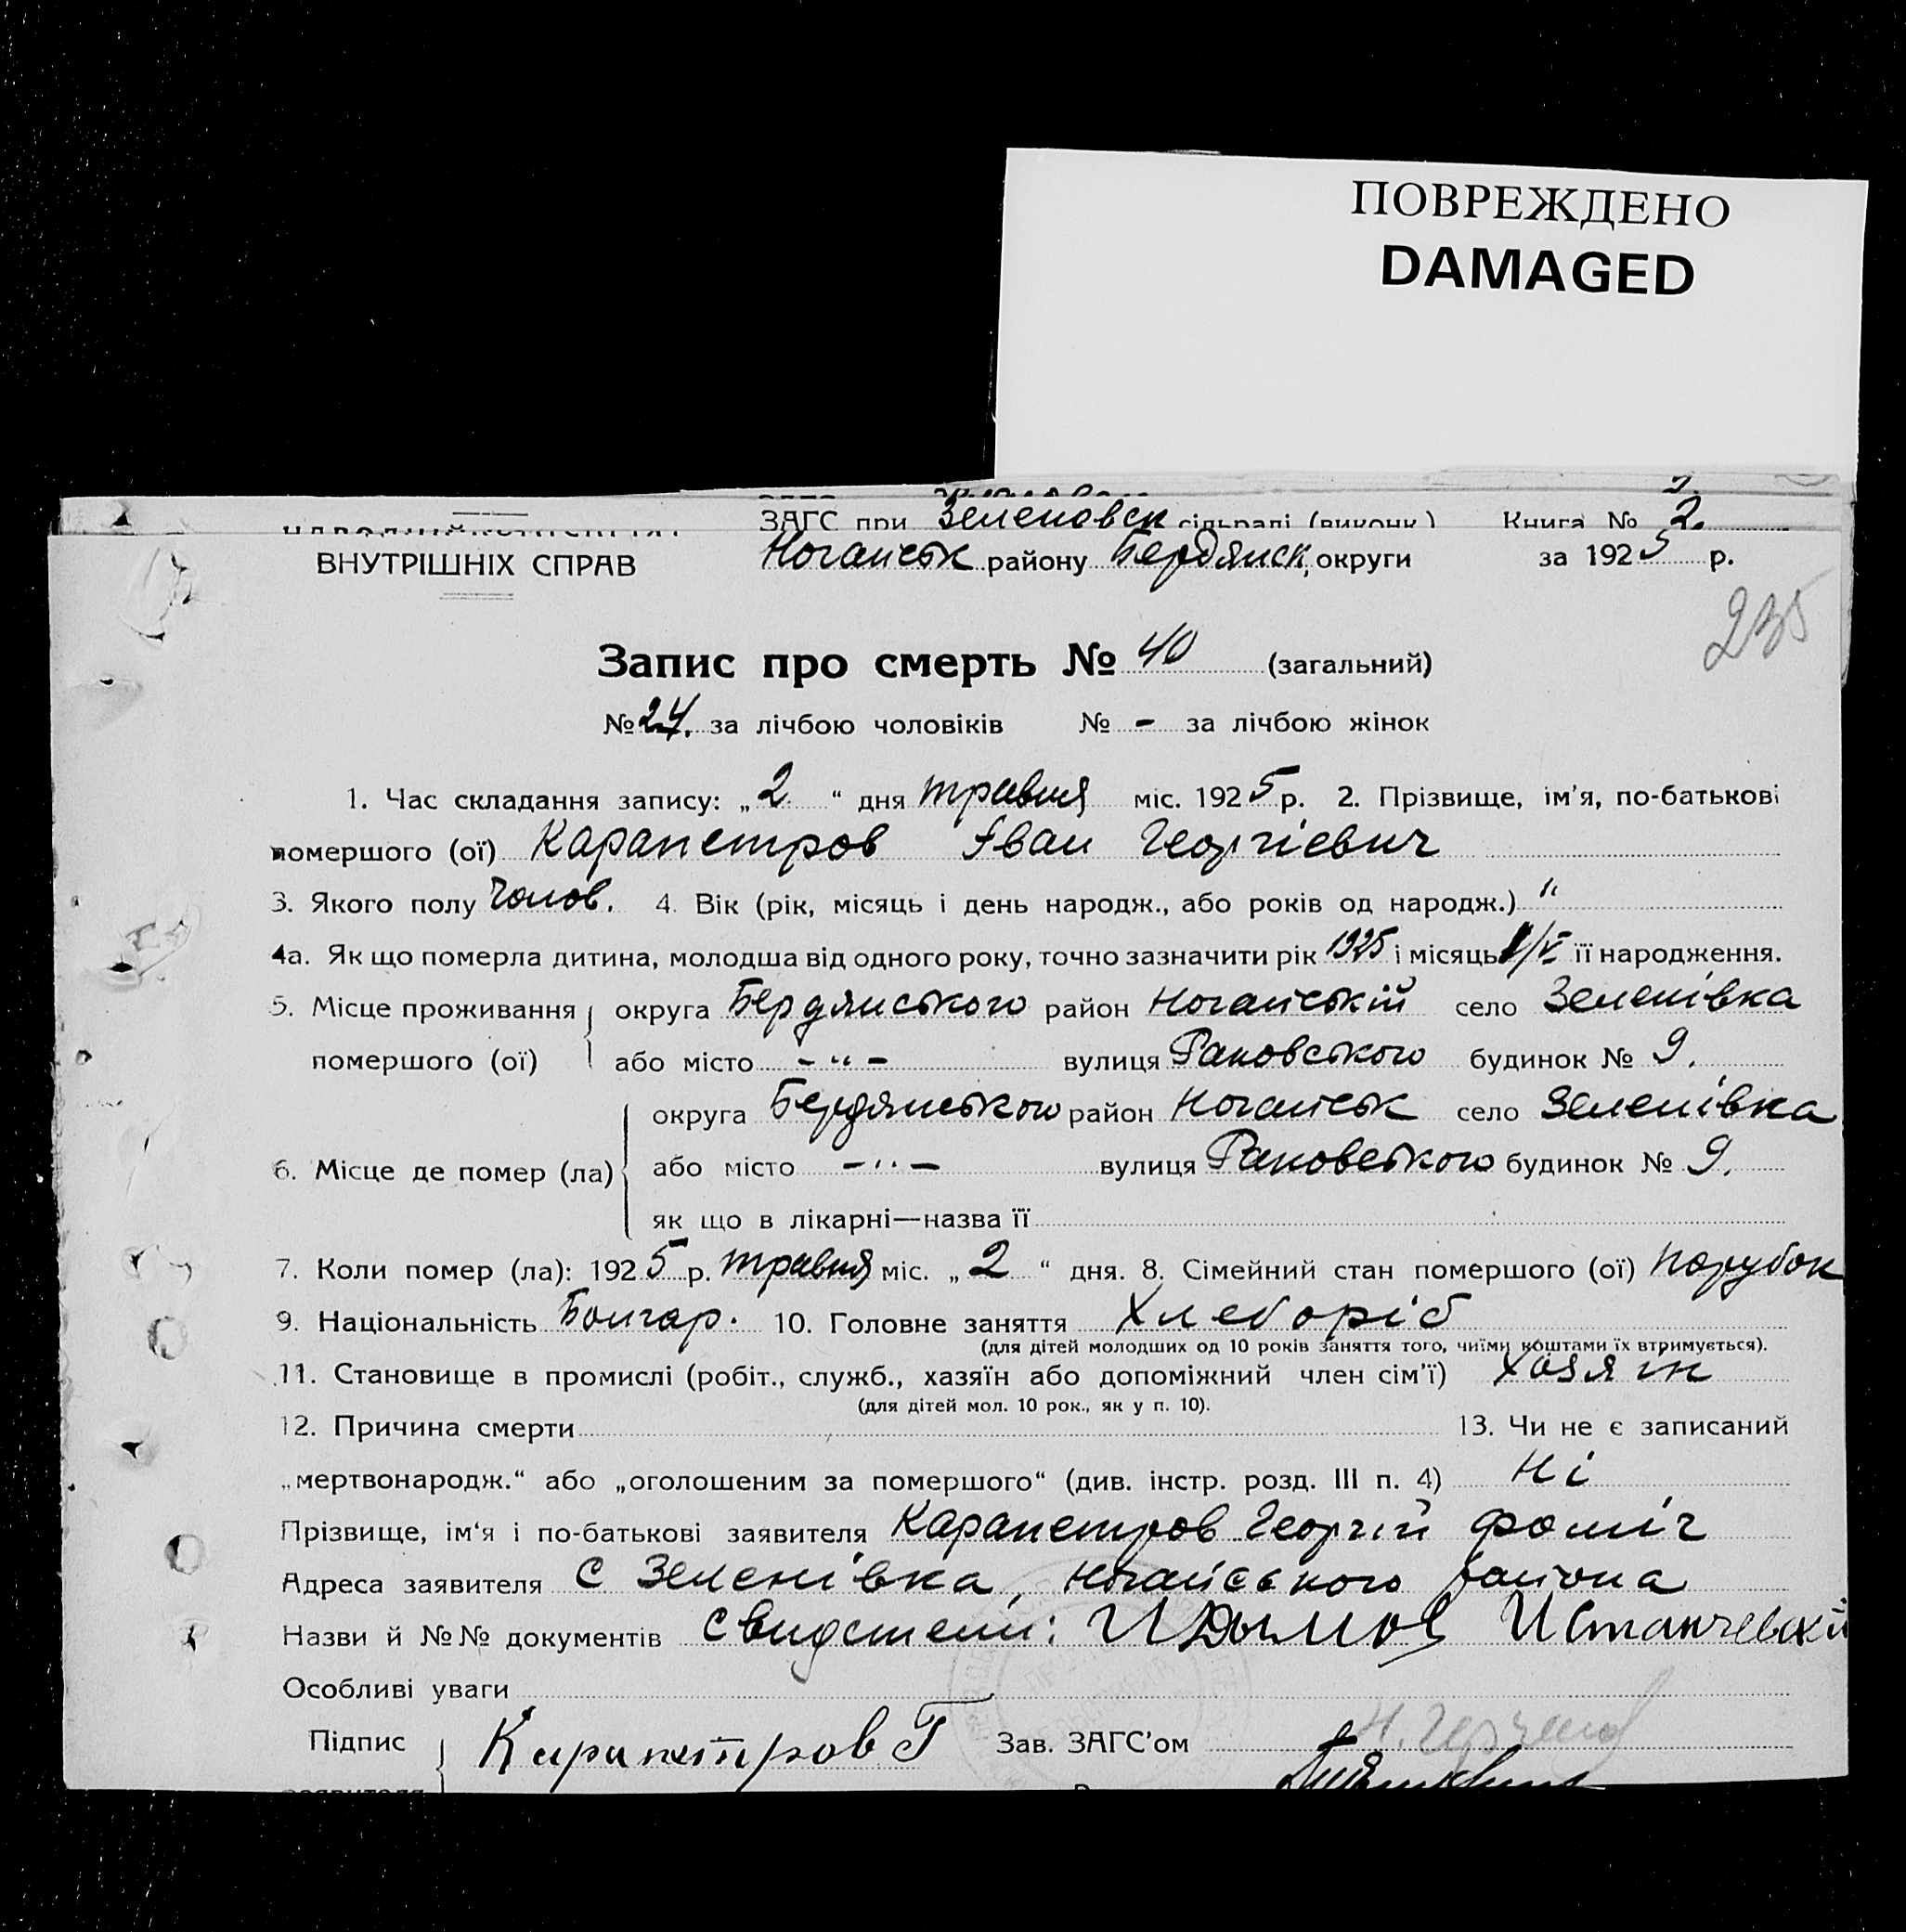 ПОВРЕЖДЕНО
DAMAGED
ЗАГС при Зеленовск сільраді (виконк.) Книга № 2
ВНУТРІШНІХ СПРАВ Ногайськ району Бердянск, округи за 1925 р.
235
Запис про смерть № 40 (загальний)
№ 24. за лічбою чоловіків № - за лічбою жінок
1. Час складання запису: „2“ дня травня міс. 1925 р. 2. Прізвище, ім'я, по-батькові
помершого (ої) Карапетров Іван Георгіевич
3. Якого полу чолов. 4. Вік (рік, місяць і день народж., або років од народж.) "
4а. Як що померла дитина, молодша від одного року, точно зазначити рік 1925 і місяць /V її народження.
5. Місце проживання округа Бердянського район Ногайській село Зеленівка
помершого (ої) або місто - " - вулиця Раковського будинок № 9.
округа Бердянського район Ногайськ село Зеленівка
6. Місце де помер (ла) або місто - " - вулиця Раковського будинок № 9.
як що в лікарні—назва її
7. Коли помер (ла): 1925 р. травня міс. „2“ дня. 8. Сімейний стан помершого (ої) парубок
9. Національність Болгар. 10. Головне заняття Хлеборіб
(для дітей молодших од 10 років заняття того, чиїми коштами їх втримується).
11. Становище в промислі (робіт., служб., хазяїн або допоміжний член сім'ї) Хазяін
(для дітей мол. 10 рок., як у п. 10).
12. Причина смерти 13. Чи не є записаний
„мертвонародж.“ або „оголошеним за помершого“ (див. інстр. розд. III п. 4) Ні
Прізвище, ім'я і по-батькові заявителя Карапетров Георгій Фоміч
Адреса заявителя С Зеленівка, Ногайського района
Назви й №№ документів Свидетели: И Дымов И Станчевский
Особливі уваги
Підпис Карапетров Г Зав. ЗАГС'ом
заявителя